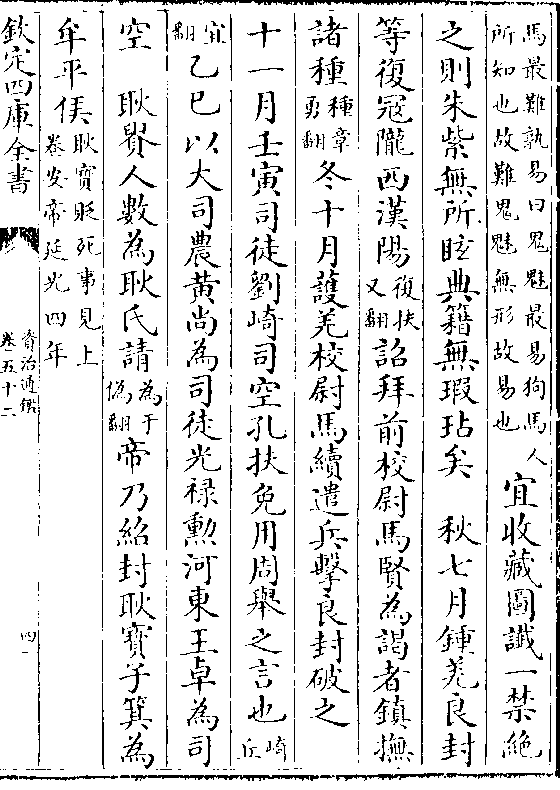 馬最難孰易曰鬼魅最易狗馬人所知也故難鬼魅無形故易也宜收藏圖讖一禁絶
之則朱紫無所眩典籍無瑕玷矣　秋七月鍾羌良封
等復寇隴西漢陽復扶又翻詔拜前校尉馬賢為謁者鎮撫
諸種種章勇翻冬十月護羌校尉馬續遣兵擊良封破之
十一月壬寅司徒劉崎司空孔扶免用周舉之言也崎丘
宜翻乙巳以大司農黄尚為司徒光禄勲河東王卓為司
空　耿貴人數為耿氏請為于偽翻帝乃紹封耿寶子箕為
牟平侯耿寶貶死事見上卷安帝延光四年
欽定四庫全書
資治通鑑
卷五十二